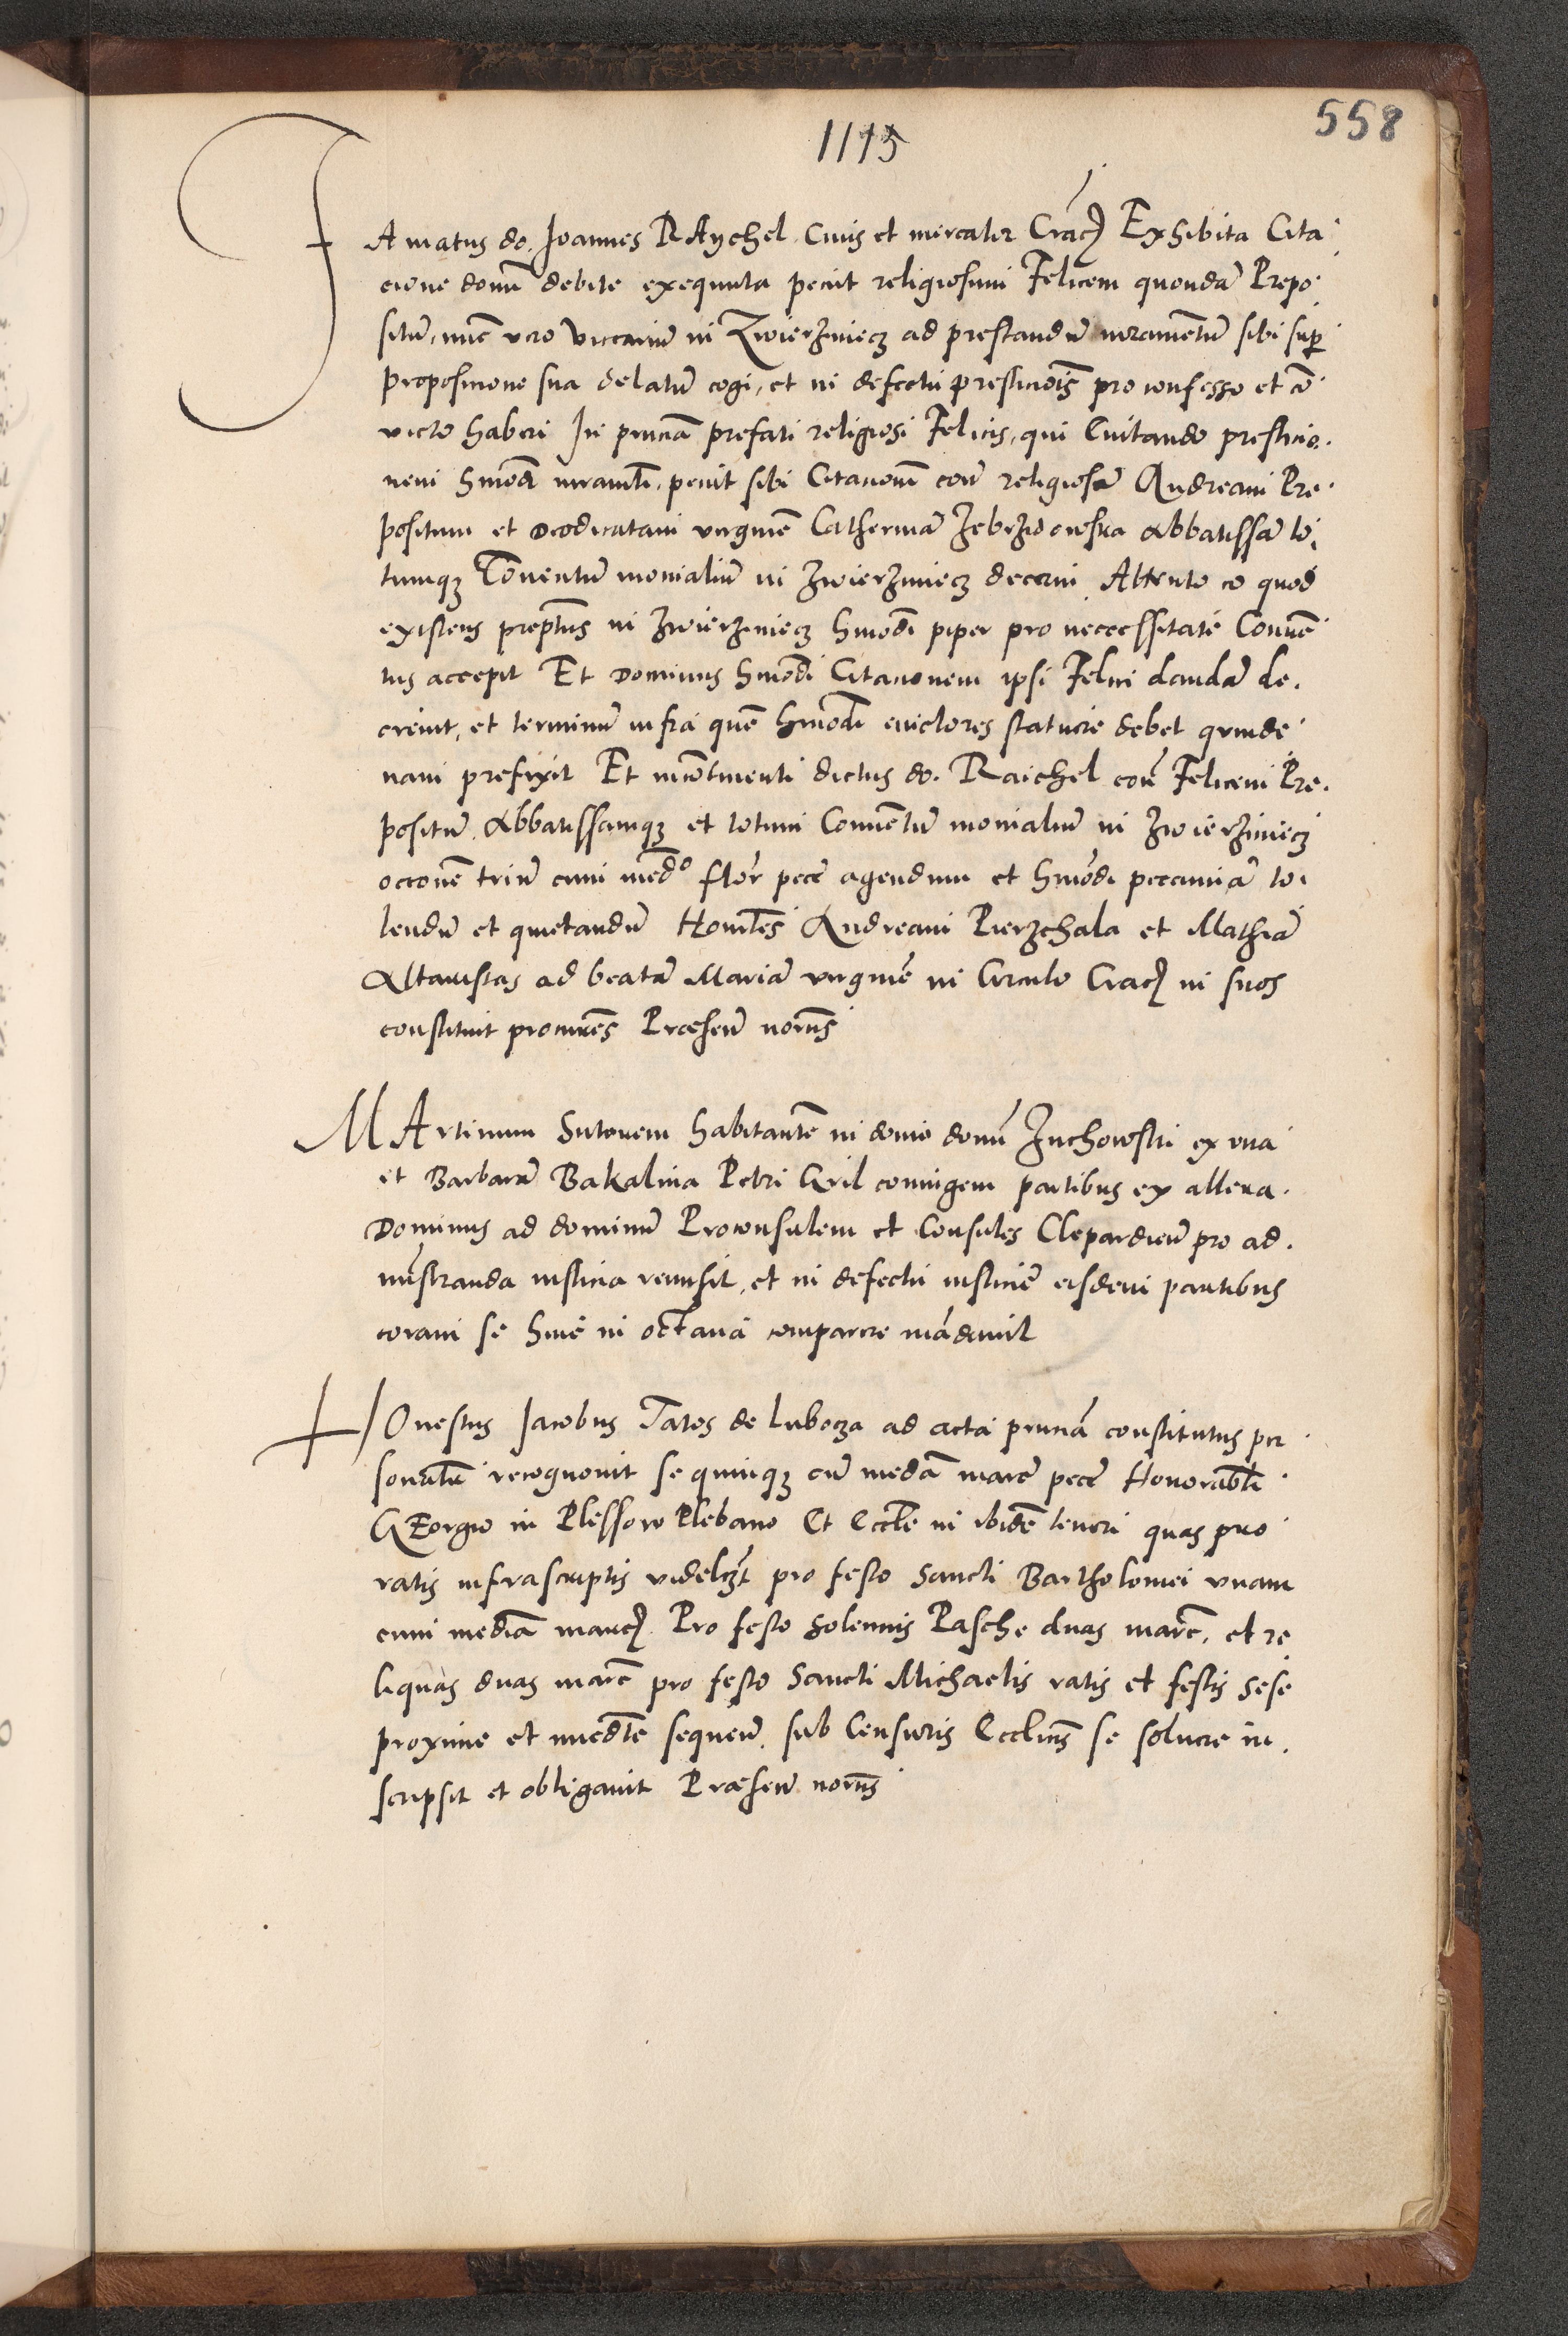 558
1115
FAmatus do. Joannes RAychel Civis et mercator Crac Exhibita Cita
cione domū debite exequuta peciit religiosum Felicem quondā Prepo
sitū, nūc vero viccariū in Zwierziniecz ad prestandū iuramentū sibi sup
propositione sua delatū cogi, et in defectū presticiōis pro confesso et cō
victo haberi In pñciā prefati religiosi Felicis, qui Evitando prestacio
nem hmōdi iuramti, peciit sibi Citacionē coñ religiosū Andream Pre
positum et Deodicatam virginē Catherinā Zebrzidowska Abbatissā to
tumqz Conventū monialiū in Zwierziniecz decerni Attento eo quod
existens preptus in Zwierziniecz hmōdi piper pro nececssitate Conven
tus accepit Et Dominus hmōdi Citacionem ipsi Felici dandā de
crevit, et terminū infra quē hmōdi evictores statuere debet quinde
nam prefixit Et incōtinenti dictus do. Raichel coñ Felicem Pre
positū Abbatissamqz et totum Conventū monialiū in Zwierziniecz
occōne triū cum medº flor pecē agendum et hmōdi peccuniā to
lendū et quietandū Honlēs Andream Pierzchala et Mathiā
Altaristas ad beatā Mariā virginē in Circulo Crac in suos
constituit procuřes Præsen noriis
MArtinum Sutorem habitantē in domo domū Zuchowski ex una
et Barbarā Bakalina Petri Gril coniugem partibus ex altera
Dominus ad dominū Proconsulem et Consules Clepardien pro ad
miñstranda iusticia remisit, et in defectū iusticiē eisdem partibus
coram se hinc in octava comparere mādavit
HOnestus Jacobus Tatos de Lubocza ad acta pñciā constitutus per
sonalr recognovit se quinqz cū mediā marc pecē Honorabli
GEorgio in Plessow Plebano Et Eccle in ibidē teneri quas pro
ratis infrascriptis videlczt pro festo Sancti Bartholomei unam
cum mediā marc Pro festo solennis Pasche duas marc, et re
liquas duas marc pro festo Sancti Michaelis ratis et festis sese
proxime et imedte sequen, sub Censuris Ecclicis se solvere in
scripsit et obligavit Præsen noriis